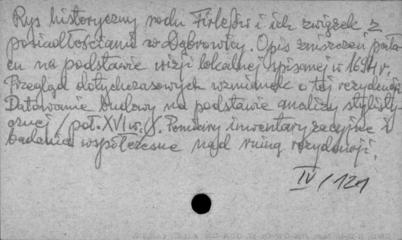 Rys historyczny rodu Firlejów i ich związek z
posiadłościami w Dąbrowicy. Opis zniszczeń pała-
cu na podstawie wizji lokalnej spisanej w 1694 r.
Przegląd dotychczasowych wzmianek o tej rezydencji.
Datowanie budowy na podstawie analizy stylisty-
cznej /poł. XVI w./. Pomiary inwentaryzacyjne i
badania współczesne nad ruiną rezydencji.
IV/121